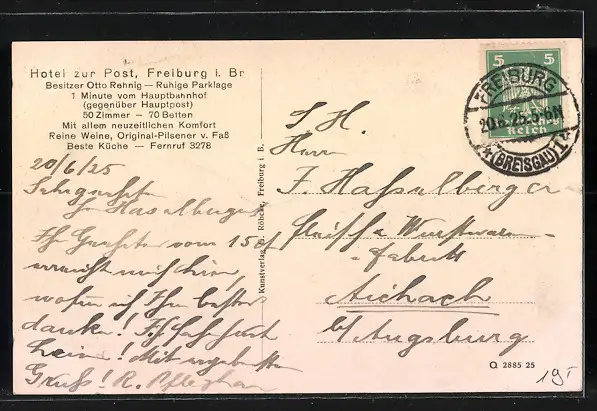 Hotel zur Post, Freiburg i. Br
Besitzer Otto Rehnig — Ruhige Parklage
1 Minute vom Hauptbahnhof
(gegenüber Hauptpost)
50 Zimmer — 70 Betten
Mit allem neuzeitlichen Komfort
Reine Weine, Original-Pilsener v. Faß
Beste Küche — Fernruf 3278
20/6/25
Sehr geehrter
Hr Haselberger
Ihr Geehrtes vom 15/
erreicht mich hier,
wofür ich Ihn bestens
danke! Ich
heim! Mit ergebenstem
Gruß! R.
Kunstverlag G. Röbcke, Freiburg i. B.
5 5
Reich
FREIBURG
20.6.25.
*(BREISGAU)1
S. H.
Herrn
J. Hasselberger
Fleisch u Wurstwaren-
-fabrik
Aichach
b/ Augsburg
Q 2885 25
19